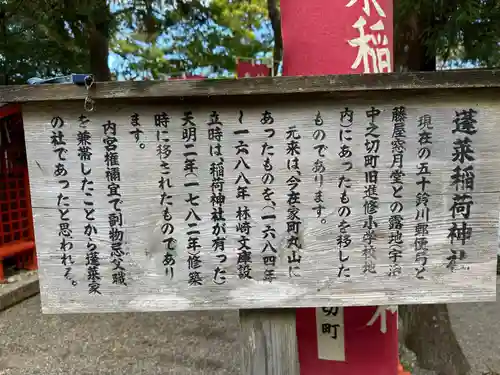 蓬莱稲荷神社
現在の五十鈴川郵便局と
藤屋窓月堂との露地宇治
中之切町旧進修小学校地
内にあった物を移した
ものであります。
元来は、今在家町丸山に
あったものを、一六八四年
〜一六八八年林崎文庫設
立時は、稲荷神社が有った)
天明二年一七八二年修築
時に移されたものであり
ます。
内宮権禰宜で副物忌父職
を兼帯したことから蓬莱家
の社であったと思われる。
稲
切町